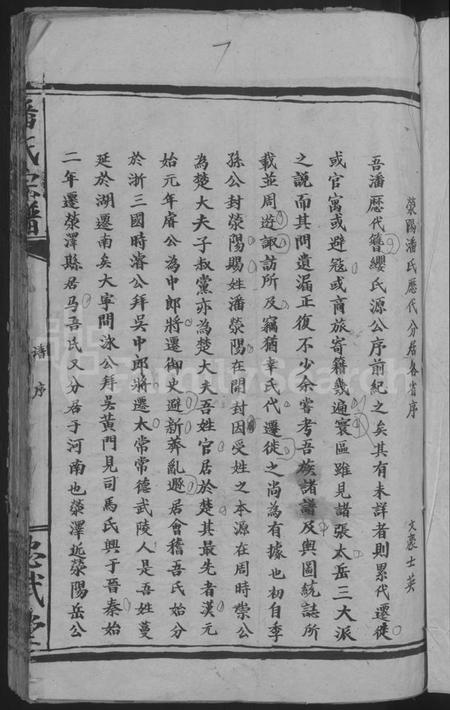 7
滎陽潘氏歷代分居各省序
文裏士英
吾潘歷代簪纓氏源公序前紀之矣其有未詳者則累代遷徙
或官寓或避寇或商旅寄籍幾遍寰區雖見諸張太岳三大派
之說而其間遺漏正復不少余嘗考吾族諸譜及輿圖統誌所
載並周遊諏訪所及竊猶幸氏代遷徙之尚為有據也初自季
孫公封滎陽賜姓潘滎陽在開封因受姓之本源在周時崇公
為楚大夫子叔黨亦為楚大夫吾姓官居於楚其最先者漢元
始元年睿公為中郎將遷御史避新莽亂遯居會稽吾氏始分
於浙三國時濬公拜吳中郎將遷太常常德武陵人是吾姓蔓
延於湖遷南矣大寧間泳公拜吳黃門見司馬氏興于晉泰始
二年遷滎澤縣居馬吾氏又分居于河南也滎澤近滎陽岳公
潘氏宗譜
譜序
忠武堂
FamilySearch